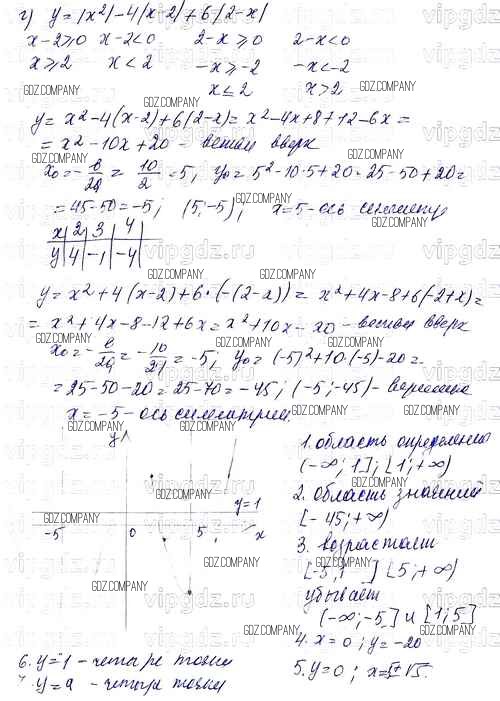 г) y = |x²| - 4|x-2| + 6|2-x|
x-2≥0 x-2<0 2-x≥0 2-x<0
x≥2 x<2 -x≥-2 -x<-2
x≤2 x>2
y = x² - 4(x-2) + 6(2-x) = x² - 4x + 8 + 12 - 6x =
= x² - 10x + 20 - ветви вверх
x₀ = -в/2a = 10/2 = 5, y₀ = 5² - 10·5 + 20 = 25 - 50 + 20 =
= 45 - 50 = -5; (5;-5), x = 5 - ось симметрии
x 2 3 4
y 4 -1 -4
y = x² + 4(x-2) + 6·(-(2-x)) = x² + 4x - 8 + 6(-2+x) =
= x² + 4x - 8 - 12 + 6x = x² + 10x - 20 - ветви вверх
x₀ = -в/2a = -10/2·1 = -5, y₀ = (-5)² + 10·(-5) - 20 =
= 25 - 50 - 20 = 25 - 70 = -45; (-5;-45) - вершина
x = -5 - ось симметрии.
y
y=1
-5 0 5 x
1. область определения
(-∞; 1]; [1; +∞)
2. область значений
[-45; +∞)
3. возрастает
[-5; 1] [5; +∞)
убывает
(-∞; -5] и [1; 5]
4. x = 0; y = -20
5. y = 0; x = 5±√5.
6. y = 1 - четыре точки
y = a - четыре точки
GDZ.COMPANY
vipgdz.ru